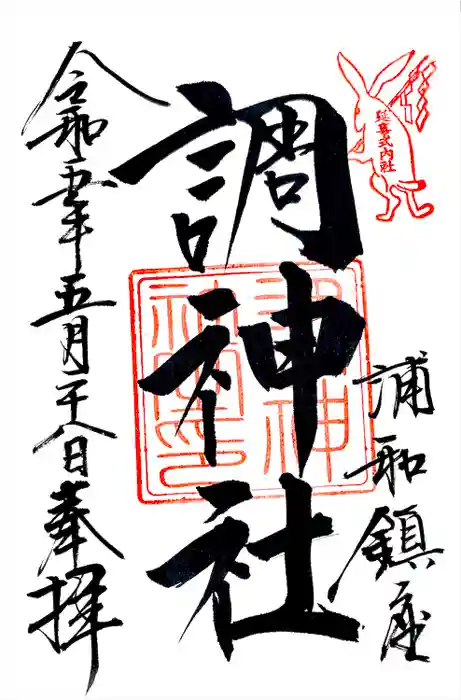 延喜式内社
浦和鎮座
調神社
調神社印
令和五年五月二十八日奉拝